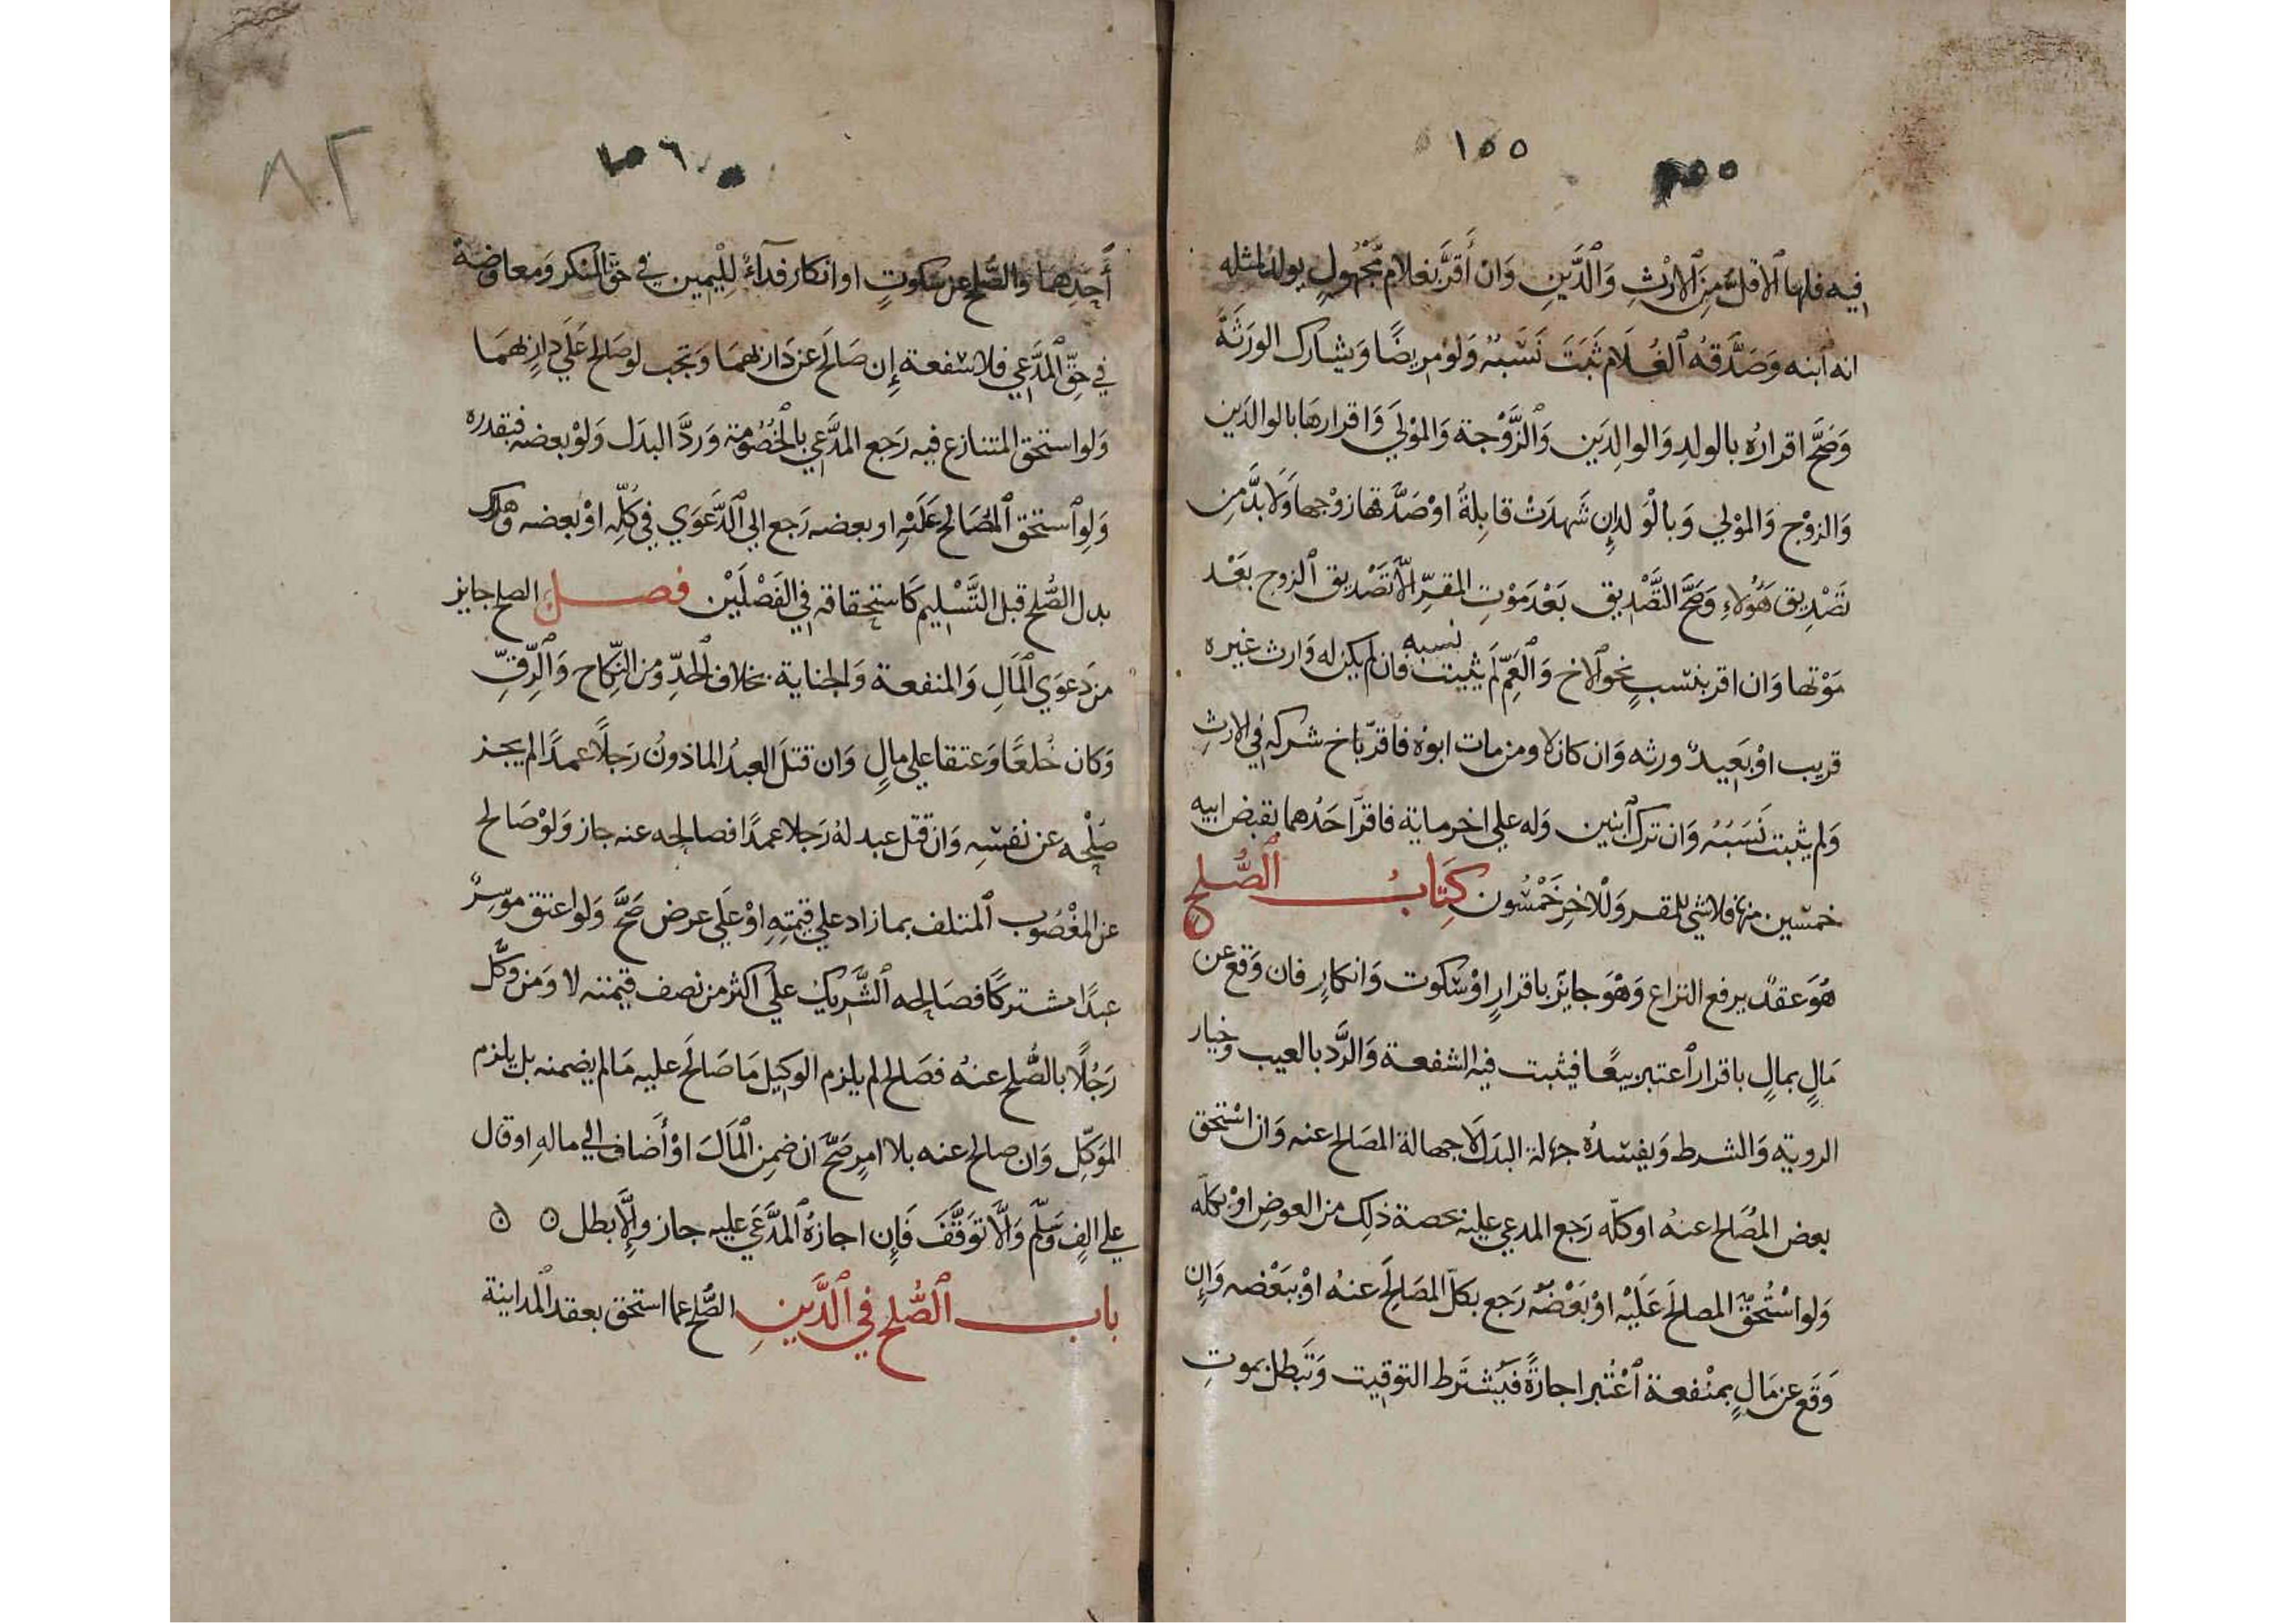 ١٥٥
فيه فلها الاقل من الارث والدين وان أقر بغلام مجهول يولد لمثله
انه ابنه وصدقه الغلام ثبت نسبه ولو مريضا ويشارك الورثة
وصح اقراره بالولد والوالدين والزوجة والمولي واقرارها بالوالدين
والزوج والمولي وبالولد إن شهدت قابلة او صدقها زوجها ولا بد من
تصديق هؤلاء وصح التصديق بعد موت المقر الا تصديق الزوج بعد
موتها وان اقر بنسب نحو الاخ والعم لم يثبت نسبه فان لم يكن له وارث غيره
قريب او بعيد ورثه وان كان لا ومن مات ابوه فاقر باخ شركه في الارث
ولم يثبت نسبه وان ترك ابنين وله علي اخر ماية فاقر احدهما بقبض ابيه
خمسين منها فلا شي للمقر وللاخر خمسون كتاب الصلح
هو عقد يرفع النزاع وهو جايز باقرار او سكوت وانكار فان وقع عن
مال بمال باقرار اعتبر بيعا فيثبت فيه الشفعة والرد بالعيب وخيار
الروية والشرط ويفسده جهالة البدل لا جهالة المصالح عنه وان استحق
بعض المصالح عنه او كله رجع المدعي عليه بحصة ذلك من العوض او بكله
ولو استحق المصالح عليه او بعضه رجع بكل المصالح عنه او ببعضه وإن
وقع عن مال بمنفعة اعتبر اجازة فيشترط التوقيت وتبطل بموت
٨٢
أحدهما والصلح عن سكوت او انكار فداء لليمين في حق المنكر ومعاوضة
في حق المدعي فلا شفعة إن صالح عن دار بهما وتجب لو صالح علي دار بهما
ولو استحق المتنازع فيه رجع المدعي بالخصومة ورد البدل ولو بعضه فبقدره
ولو استحق المصالح عليه او بعضه رجع الي الدعوي في كله او بعضه وهلاك
بدل الصلح قبل التسليم كاستحقاقه في الفصلين فصل الصلح جايز
من دعوي المال والمنفعة والجناية بخلاف الحد ومن النكاح والرق
وكان خلعا وعتقا علي مال وان قتل العبد الماذون رجلا عمدا لم يجز
صلحه عن نفسه وان قتل عبد له رجلا عمدا فصالحه عنه جاز ولو صالح
عن المغصوب المتلف بما زاد علي قيمته او علي عرض صح ولو اعتق موسر
عبدا مشتركا فصالحه الشريك علي اكثر من نصف قيمته لا ومن وكل
رجلا بالصلح عنه فصالح لم يلزم الوكيل ما صالح عليه ما لم يضمنه بل يلزم
الموكل وان صالح عنه بلا امر صح ان ضمن المال او أضاف الي ماله او قال
علي الف وسلم والا توقف فإن اجازه المدعي عليه جاز والا بطل ن ن
باب الصلح في الدين الصلح عما استحق بعقد المداينة